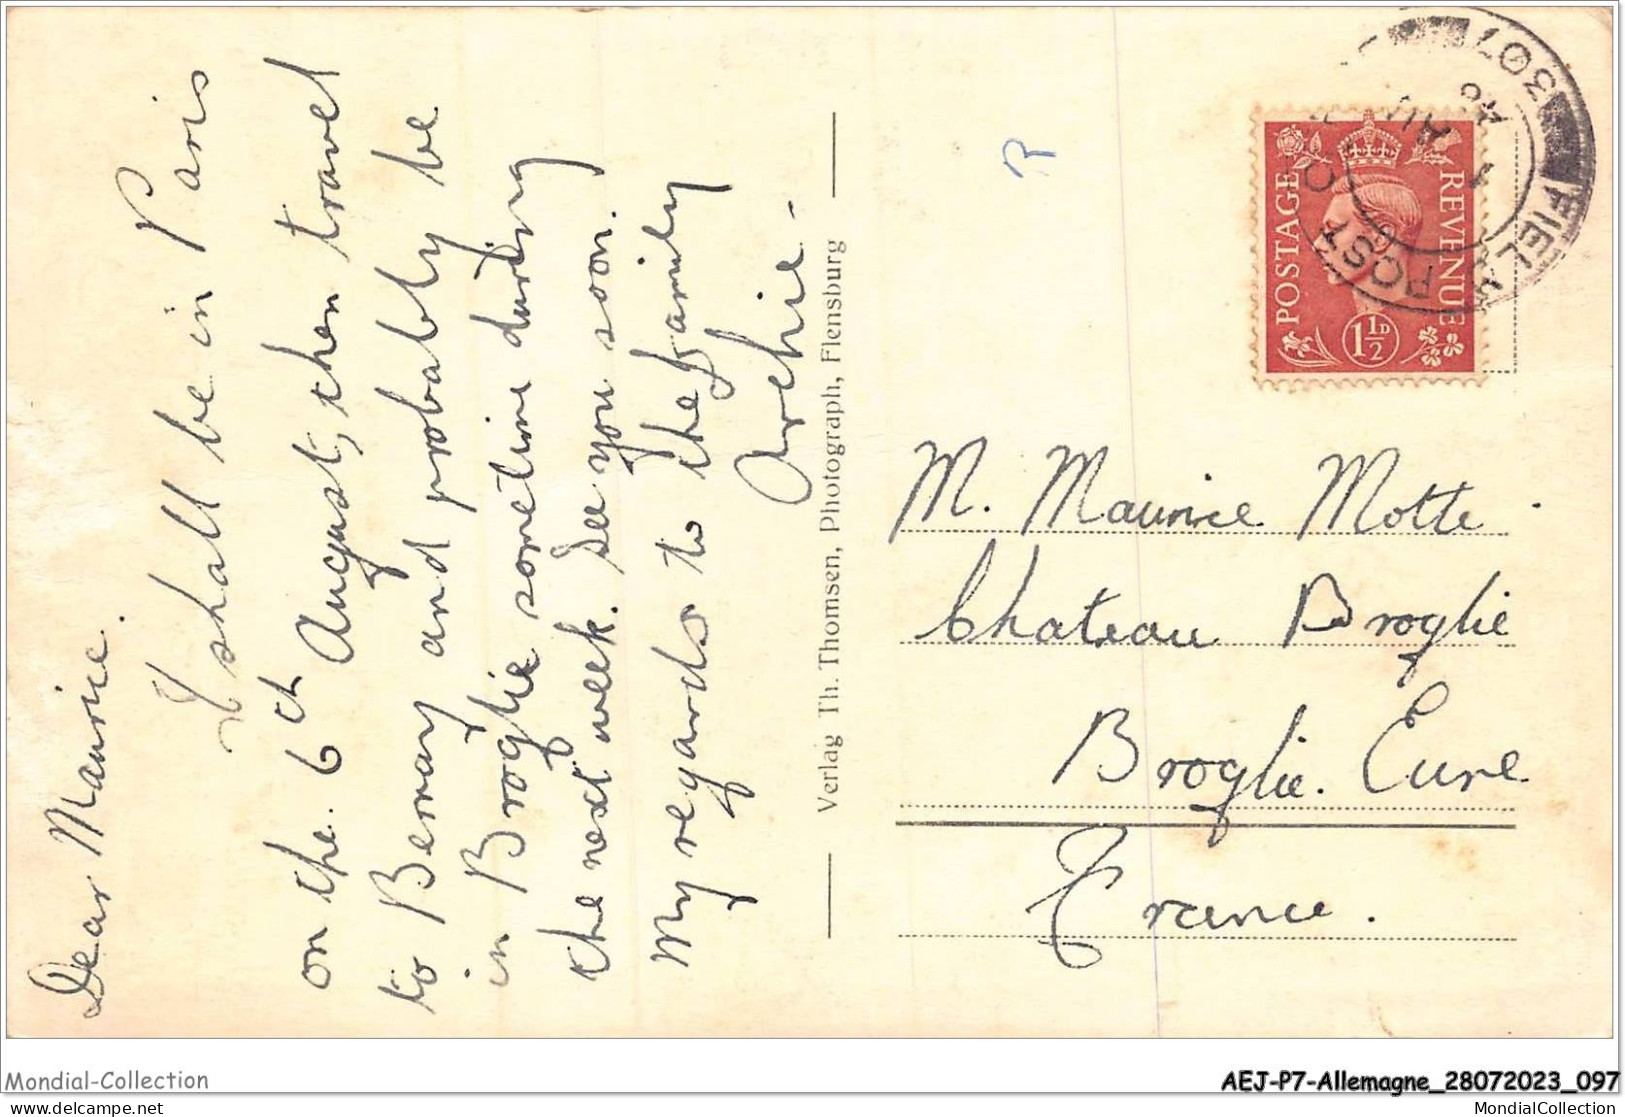 Dear Maurice.
I shall be in Paris
on the. 6th August, then travel
to Bernay and probably be
in Broglie sometime during
the next week. See you soon.
My regards to the family
Archie -
Verlag Th. Thomsen, Photograph, Flensburg
R
FIELD POST OFFICE
307
1
AU
48
POSTAGE
REVENUE
1½D
M. Maurice Motte
Chateau Broglie
Broglie. Eure
France.
Mondial-Collection
AEJ-P7-Allemagne_28072023_097
www.delcampe.net
MondialCollection